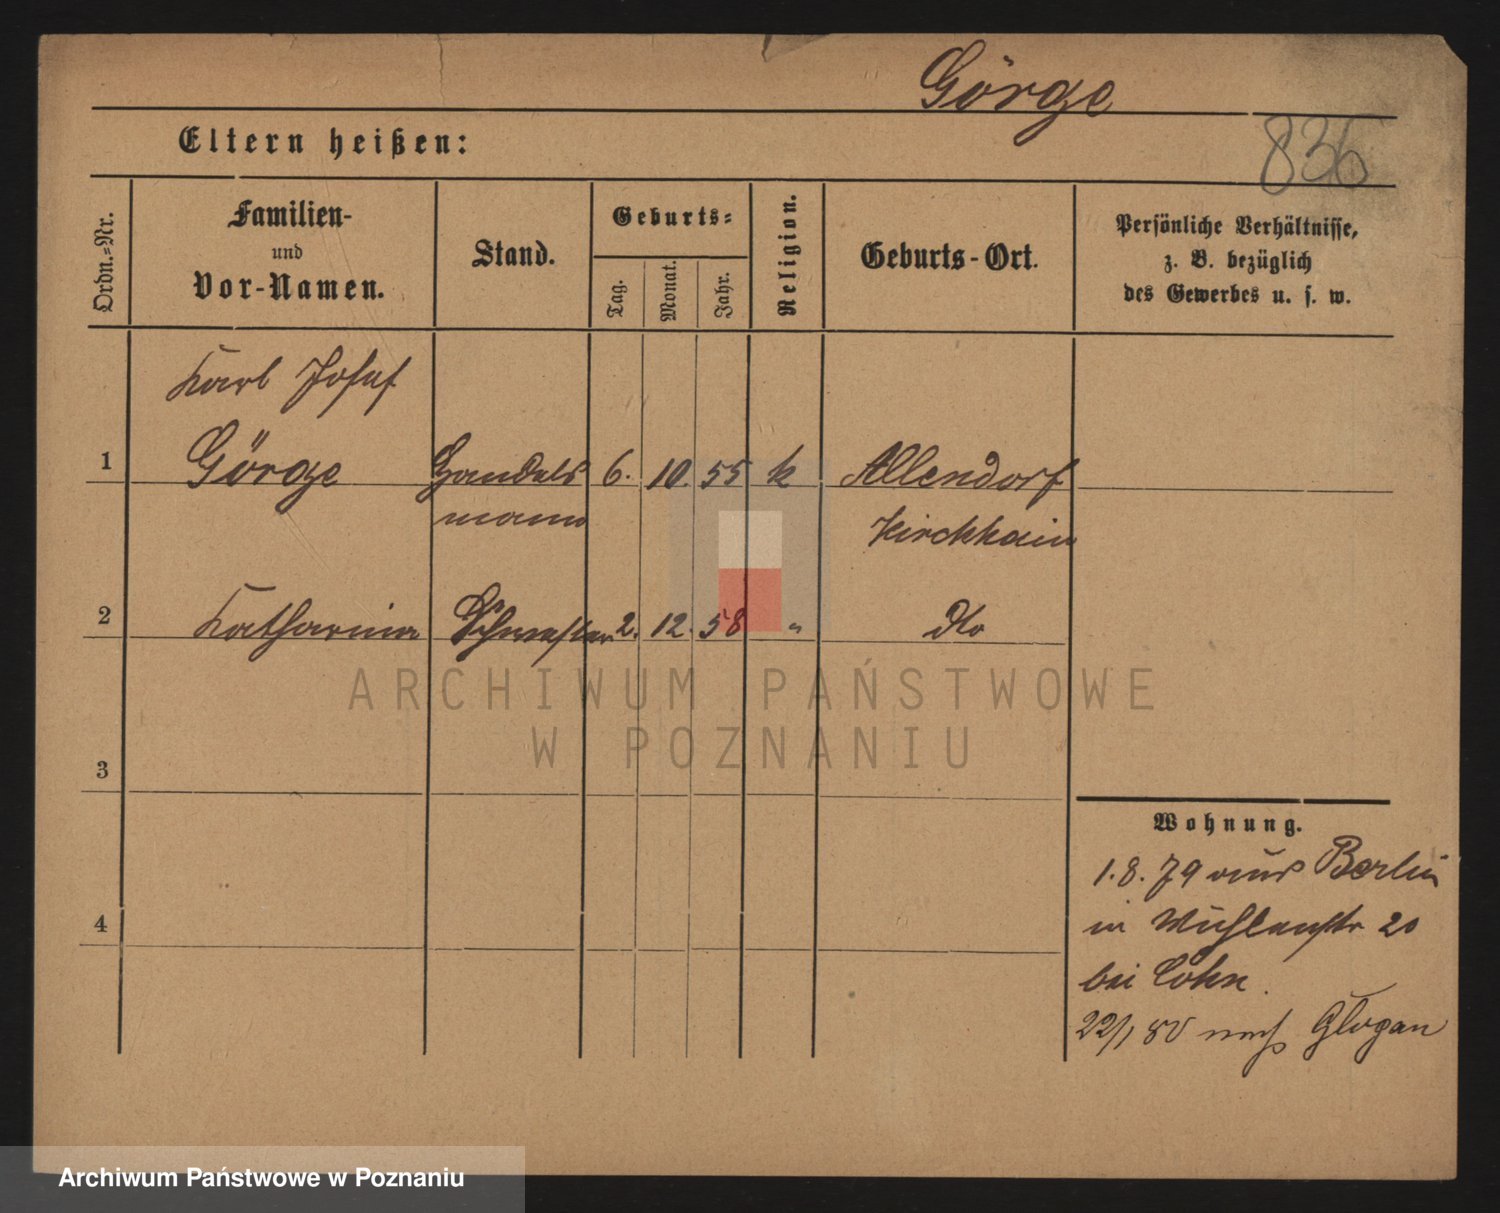 Görge
836
Eltern heißen:
Ordn.-Nr.
Familien-
und
Vor-Namen.
Stand.
Geburts-
Tag.
Monat.
Jahr.
Religion.
Geburts-Ort.
Persönliche Verhältnisse,
z. B. bezüglich
des Gewerbes u. s. w.
Karl Josef
1 Görge Handels 6. 10. 55 k Allendorf
mann Kirchhain
2 Katharina Schwester 2. 12. 58 " dto
ARCHIWUM PAŃSTWOWE
W POZNANIU
3
Wohnung.
1.8.79 aus Berlin
4
in Mühlenstr 20
bei Cohn.
22/1 80 nach Glogau
Archiwum Państwowe w Poznaniu